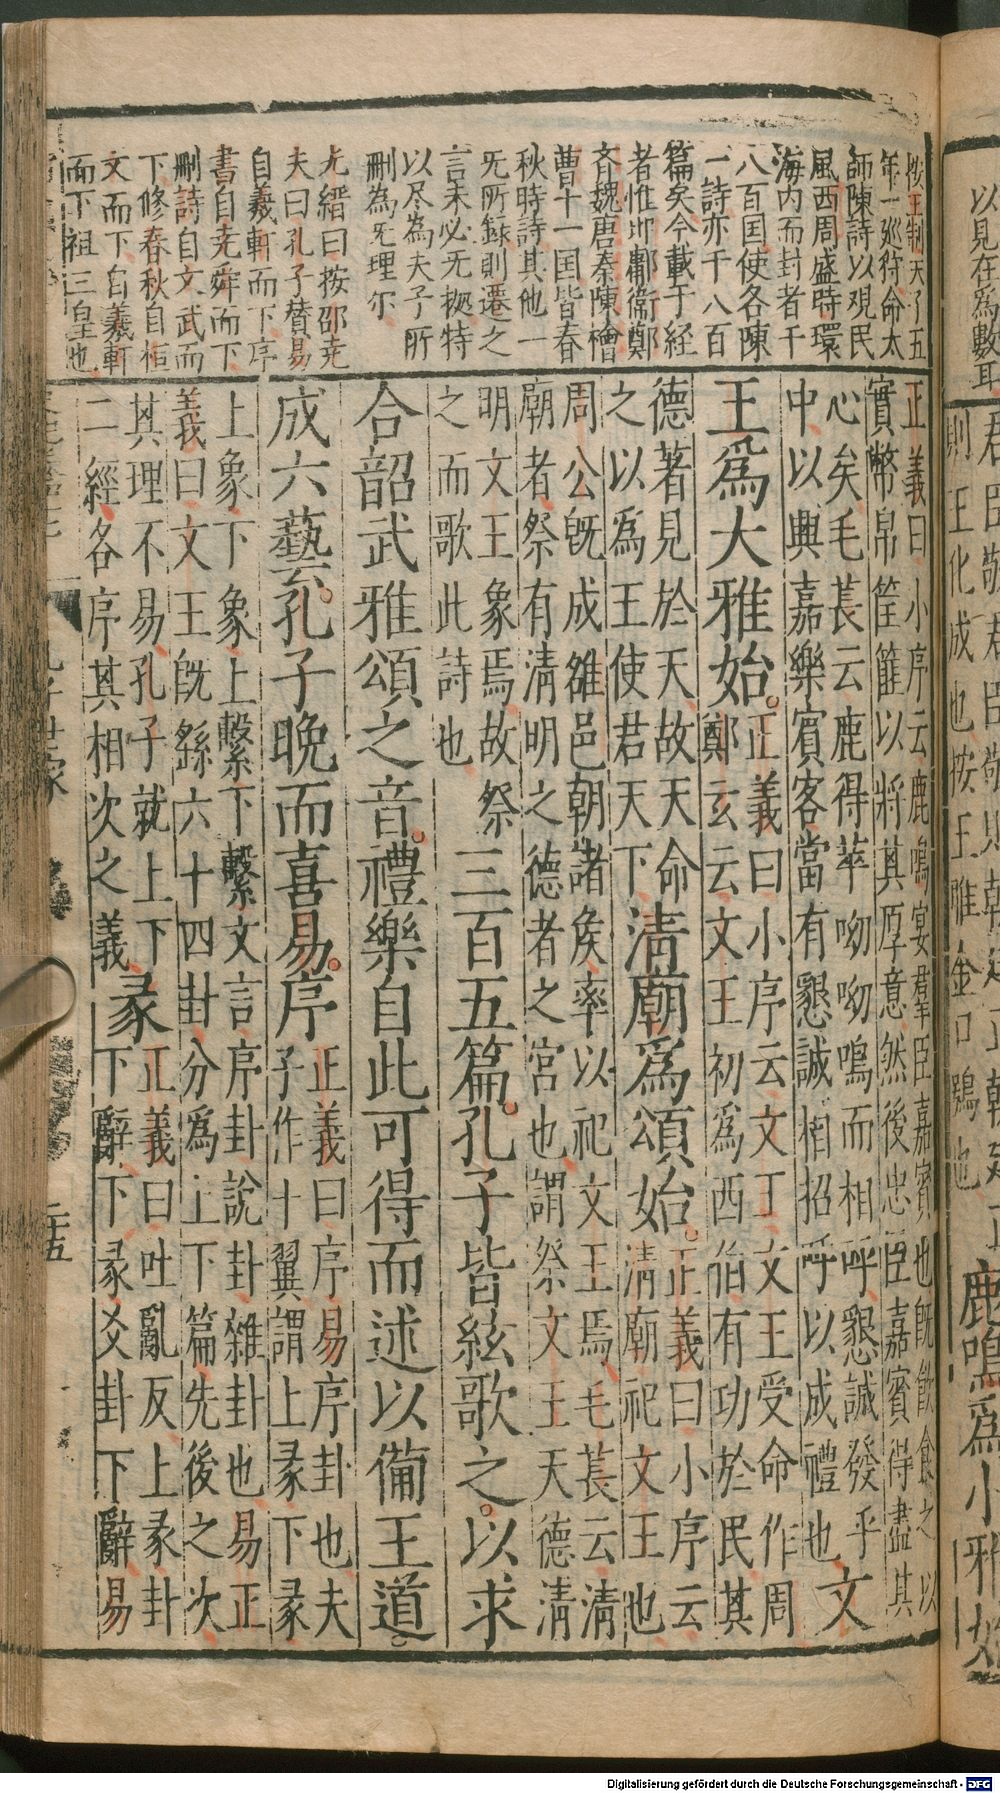 以見在為數耳
則王化成也按王雎金口鶚也
鹿鳴為小雅始
按王制天子五
年一巡狩命太
師陳詩以覌民
風西周盛時環
海内而封者千
八百国使各陳
一詩亦千八百
篇矣今載于経
者惟邶鄘衛鄭
斉魏唐秦陳檜
曹十一国皆春
秋時詩其他一
旡所録則遷之
言未必旡拠特
以尽為夫子所
刪為旡理尓
尤縉曰按邵尭
夫曰孔子賛易
自羲軒而下序
書自尭舜而下
刪詩自文武而
下修春秋自桓
文而下自羲軒
而下祖三皇也
正義曰小序云鹿鳴宴羣臣嘉賓也既飲食之以
實幣帛筐篚以將其厚意然後忠臣嘉賓得盡其
心矣毛萇云鹿得苹呦呦鳴而相呼懇誠發乎
中以興嘉樂賓客當有懇誠相招呼以成禮也文
王爲大雅始。正義曰小序云文王文王受命作周
鄭玄云文王初爲西伯有功於民其
德著見於天故天命
之以爲王使君天下清廟爲頌始。正義曰小序云
清廟祀文王也
周公旣成雒邑朝諸侯率以祀文王焉毛萇云清
廟者祭有清明之德者之宮也謂祭文王天德清
明文王象焉故祭
之而歌此詩也三百五篇。孔子皆絃歌之。以求
合韶武雅頌之音。禮樂自此可得而述以俻王道。
成六藝。孔子晚而喜易。序正義曰序易序卦也夫
子作十翼謂上彖下彖
上象下象上繫下繫文言序卦說卦雜卦也易正
義曰文王旣繇六十四卦分爲上下篇先後之次
其理不易孔子就上下
二經各序其相次之義彖正義曰吐亂反上彖卦
下辭下彖爻卦下辭易
孔子世家
二十五
Digitalisierung gefördert durch die Deutsche Forschungsgemeinschaft - DFG